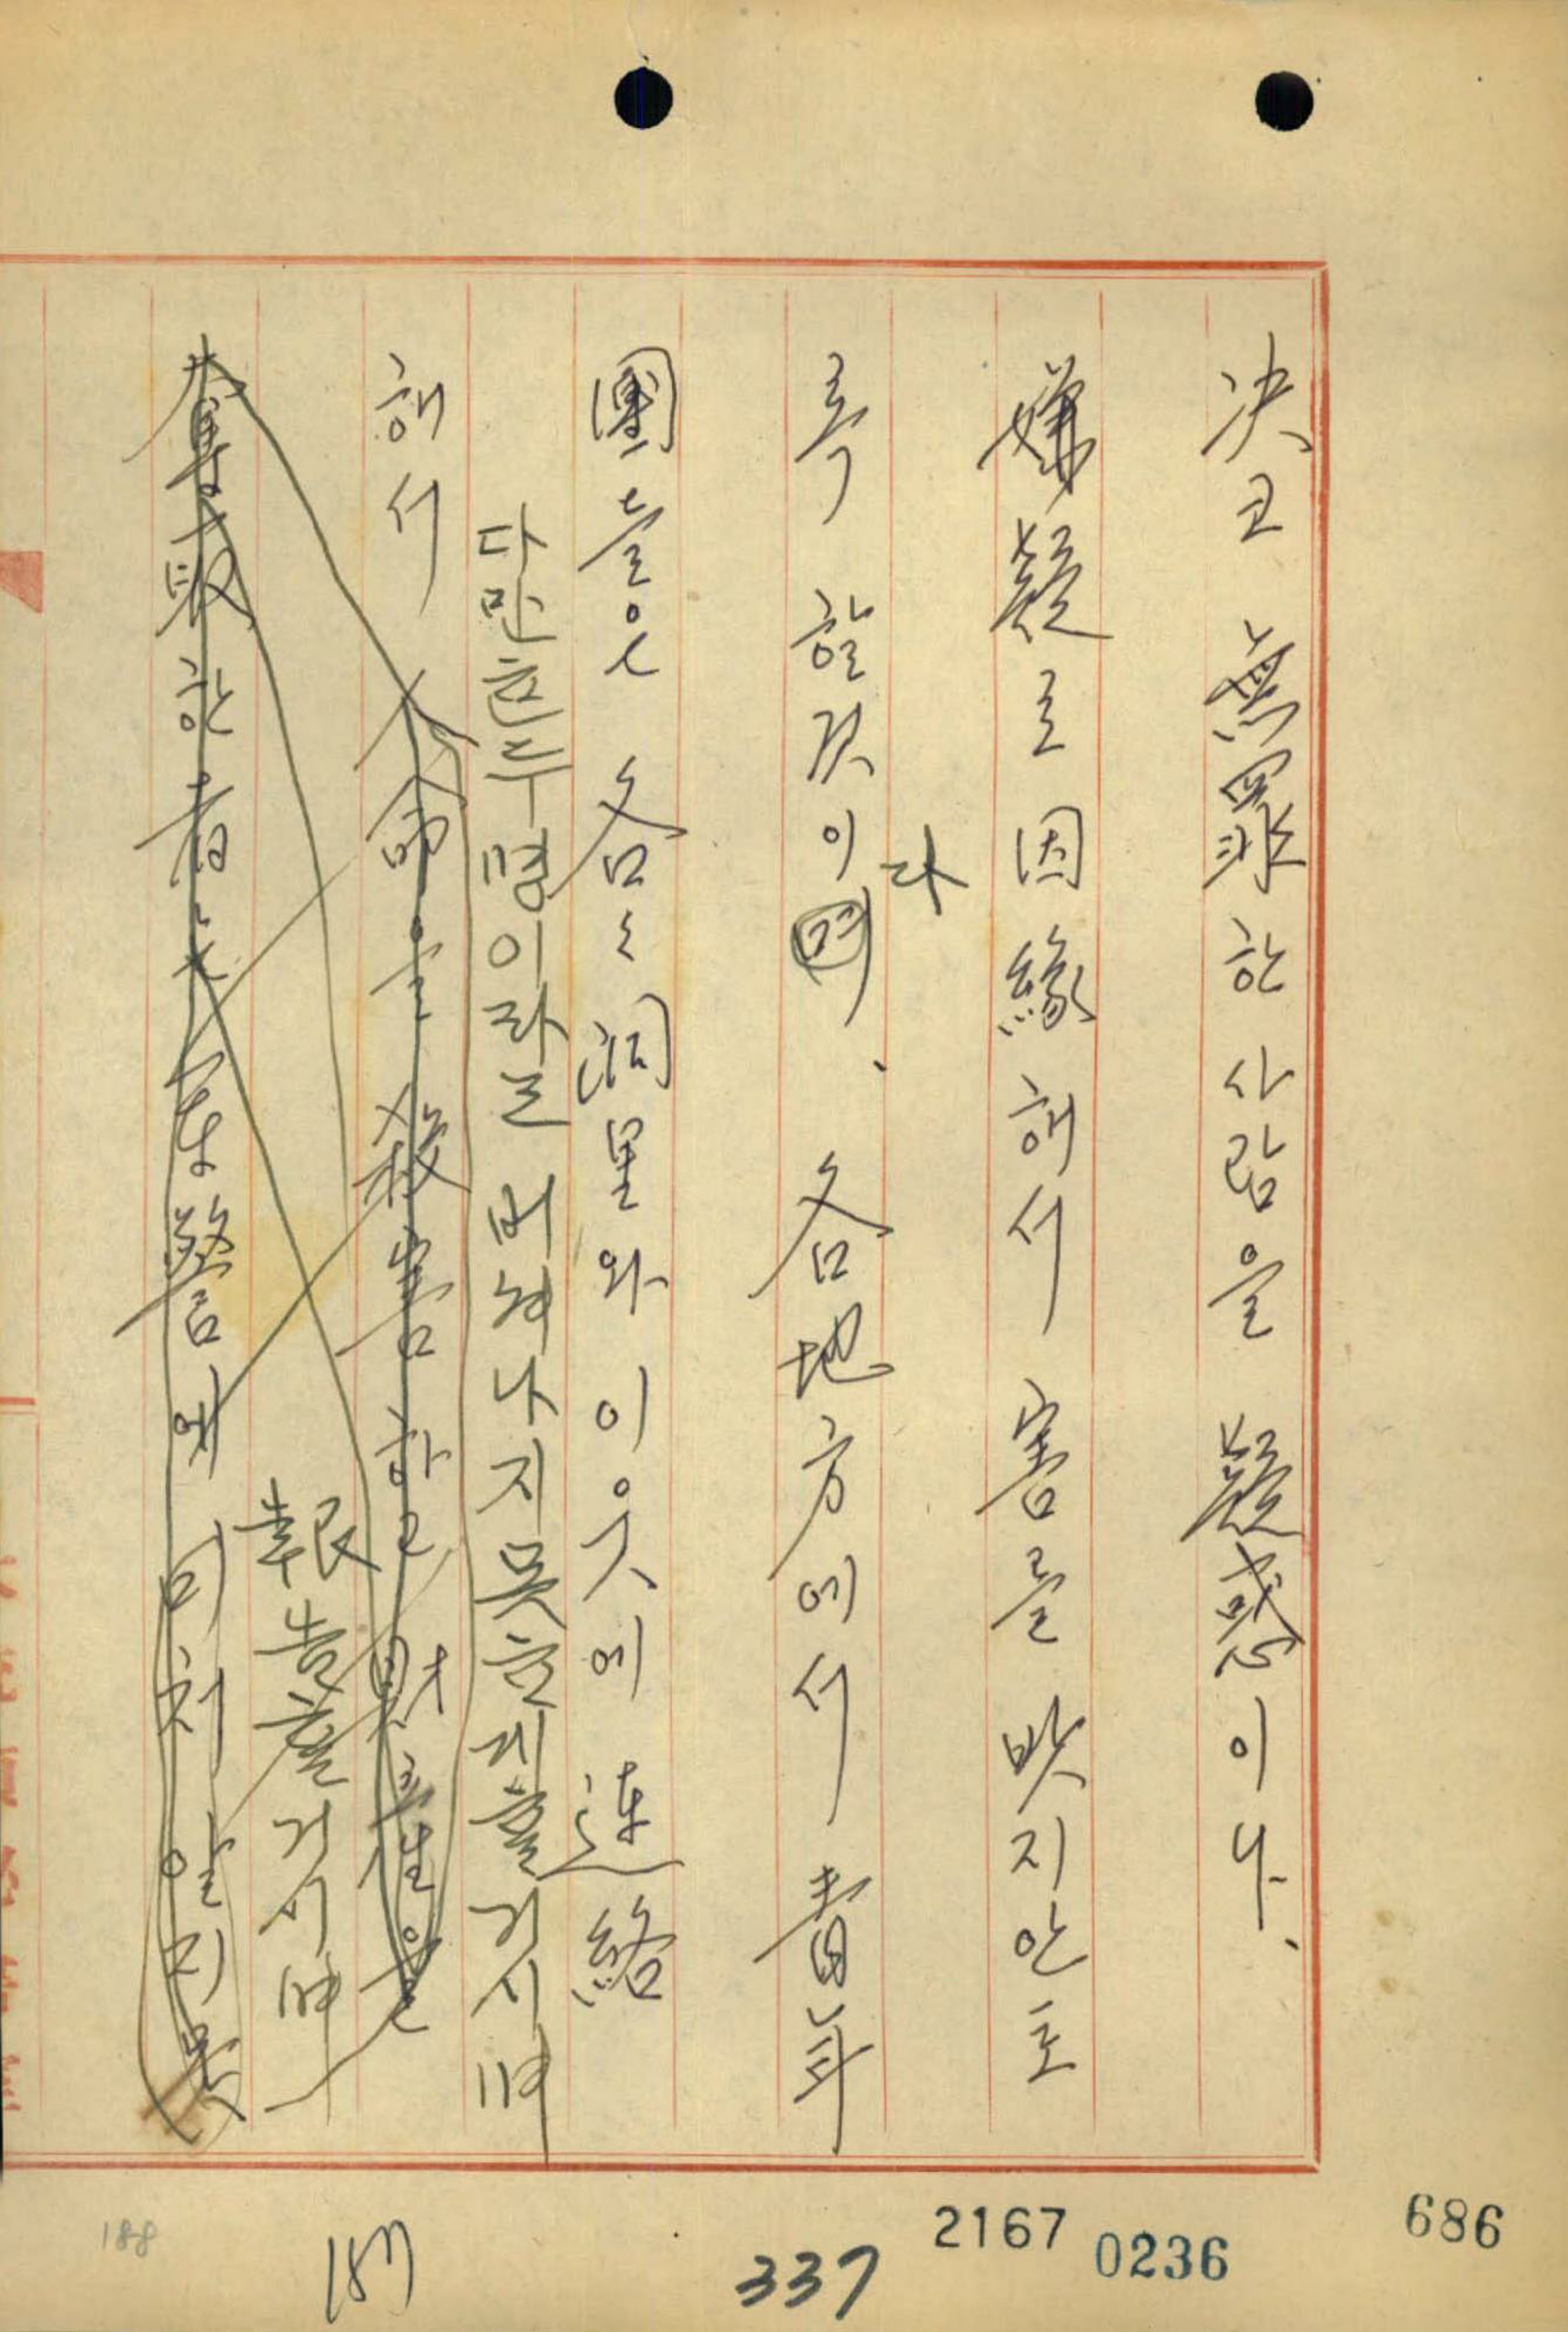 决코 無罪한 사람을 疑惑이나、
嫌疑로 因緣해서 害를 밧지안토
록 할것이며、 各地方에서 靑年
다
團들은 各々 洞里와 이웃에 連絡
다만 한두명이라도 버서나지못한게할거시며
해서 人命을 殺害하고 財産을
報告할거시며
奪取한者는 軍警에 미처 알지못
686
2167
0236
337
187
188